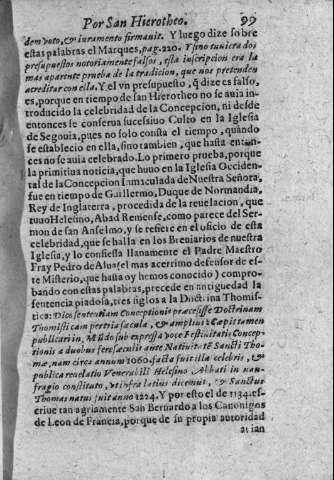 Por San Hierotheo. 99
dem voto, & iuramento firmauit. Y luego dize sobre
estas palabras el Marques, pag. 220. Y sino tuuiera dos
presupuestos notoriamente falsos, esta inscripcion era la
mas aparente prueba de la tradicion, que nos pretenden
acreditar con ella. Y el vn presupuesto, q̃ dize es falso,
es, porque en tiempo de san Hierotheo no se auia in-
troducido la celebridad de la Concepcion, ni desde
entonces se conserua sucessiuo Culto en la Iglesia
de Segouia, pues no solo consta el tiempo, quando
se establecio en ella, sino tambien, que hasta enton-
ces no se auia celebrado. Lo primero prueba, porque
la primitiua noticia, que huuo en la Iglesia Occiden-
tal de la Concepcion Inmaculada de Nuestra Señora,
fue en tiempo de Guillermo, Duque de Normandia,
Rey de Inglaterra, procedida de la reuelacion, que
tuuo Helsino, Abad Remense, como parece del Ser-
mon de san Anselmo, y se refiere en el oficio de esta
celebridad, que se halla en los Breuiarios de nuestra
Iglesia, y lo confiessa llanamente el Padre Maestro
Fray Pedro de Alua (el mas acerrimo defensor de es-
te Misterio, que hasta oy hemos conocido) compro-
bando con estas palabras, precede en antiguedad la
sentencia piadosa, tres siglos a la Doctrina Thomis-
tica: Dico sententiam Conceptionis præcessisse Doctrinam
Thomisticam per tria sæcula, & amplius: Capit tamen
publicari in, Mūdo sub expressa voce Festiuitatis Concep-
tionis a duobus fere sæculis ante Natiuitatē Sancti Tho-
mæ, nam circa annum 1060. facta fuit illa celebris, &
publica reuelatio Venerabili Helsino Abbati in nau-
fragio constituto, vt infra latius dicemus, & Sanctus
Thomas natus fuit anno 1224. Y por esto el de 1134. es-
criue tan agriamente San Bernardo a los Canonigos
de Leon de Francia, porque de su propia autoridad